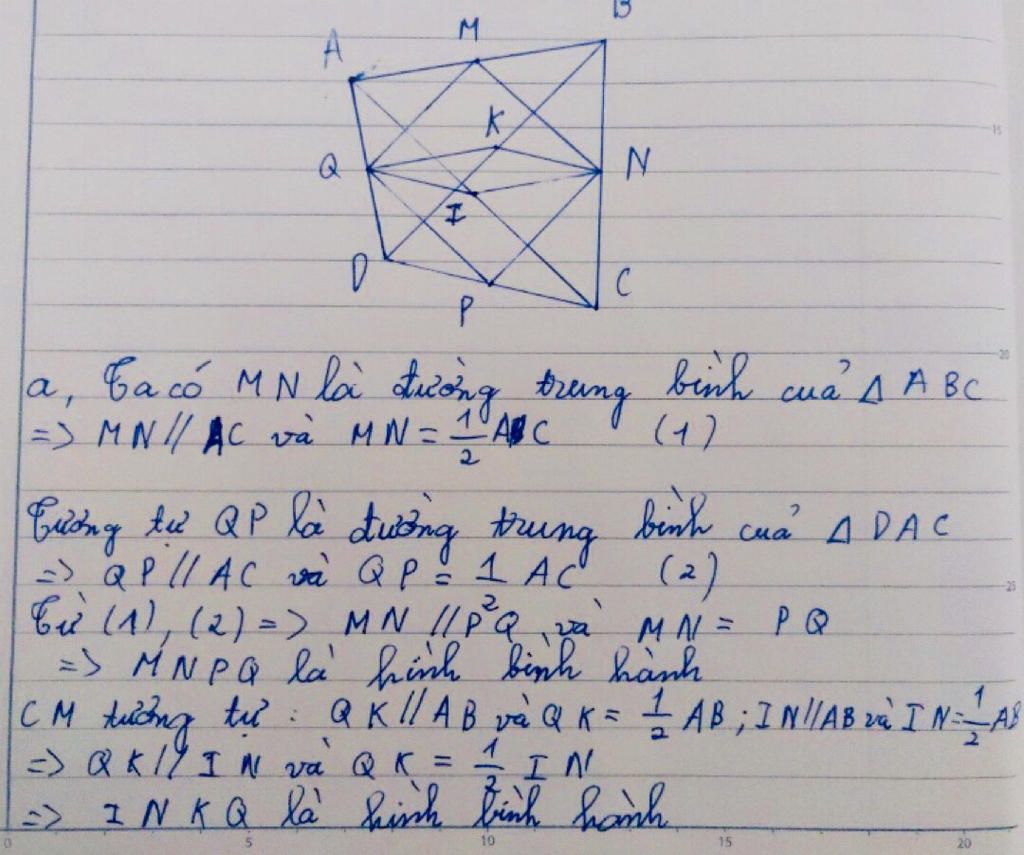 B
M
A
K
Q
N
I
D
C
P
15
20
25
a, Ta có MN là đường trung bình của Δ ABC
=> MN // AC và MN = 1/2 AC (1)
Tương tự QP là đường trung bình của Δ DAC
=> QP // AC và QP = 1/2 AC (2)
Từ (1), (2) => MN // PQ và MN = PQ
=> MNPQ là hình bình hành
CM tương tự : QK // AB và QK = 1/2 AB ; IN // AB và IN = 1/2 AB
=> QK // IN và QK = 1/2 IN
=> INKQ là hình bình hành
0 5 10 15 20